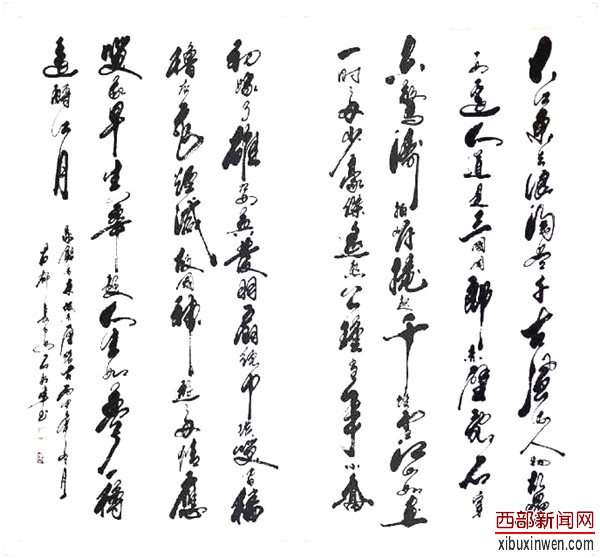 大江東去浪淘盡千古風流人物故壘
西邊人道是三國周郎赤壁亂石穿
空驚濤拍岸捲起千堆雪江山如畫
一時多少豪傑遙想公瑾當年小喬
初嫁了雄姿英發羽扇綸巾談笑間檣
櫓灰飛煙滅故國神遊多情應
笑我早生華髮人生如夢一樽
還酹江月
西部新闻网
xibuxinwen.com